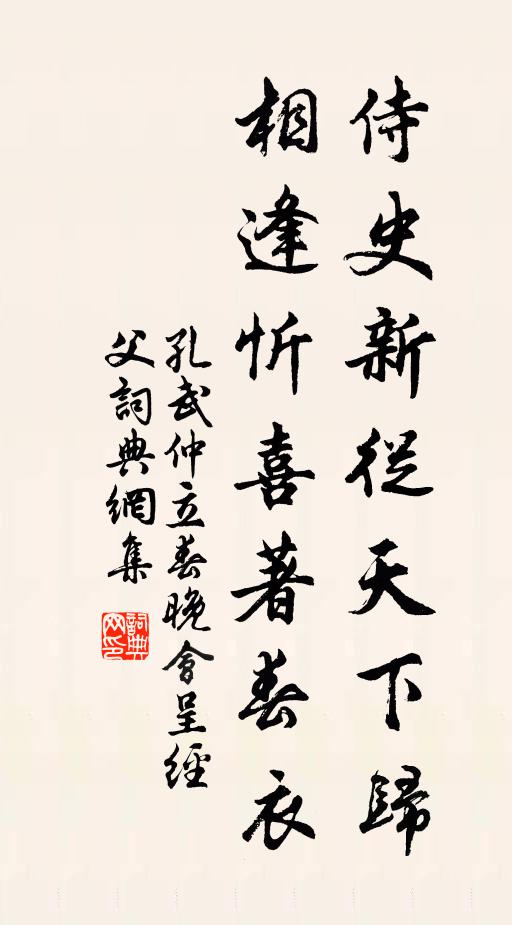 侍史新從天下歸
相逢忻喜著春衣
孔武仲立春晚會呈經
父詞典網集
詞典
网印